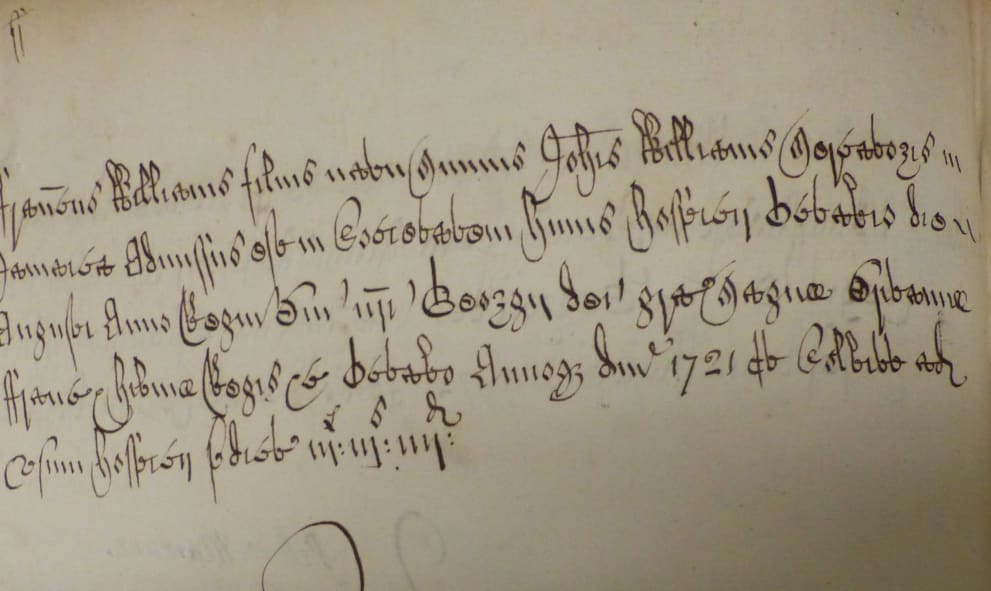 Franc̄us Williams filius natu Maximus Joh̄is Williams Mercatoris in
Jamaica Admissus est in Societatem hujus hospicij Octavo die
Augusti Anno Regni Dni n̄ri Georgij dei gra Magnæ Britanniæ
ffranc hibniæ Regis &c Octavo Annoq Dni 1721 et Solvit ad
usum hospicij pdict iij: iij: iiij: